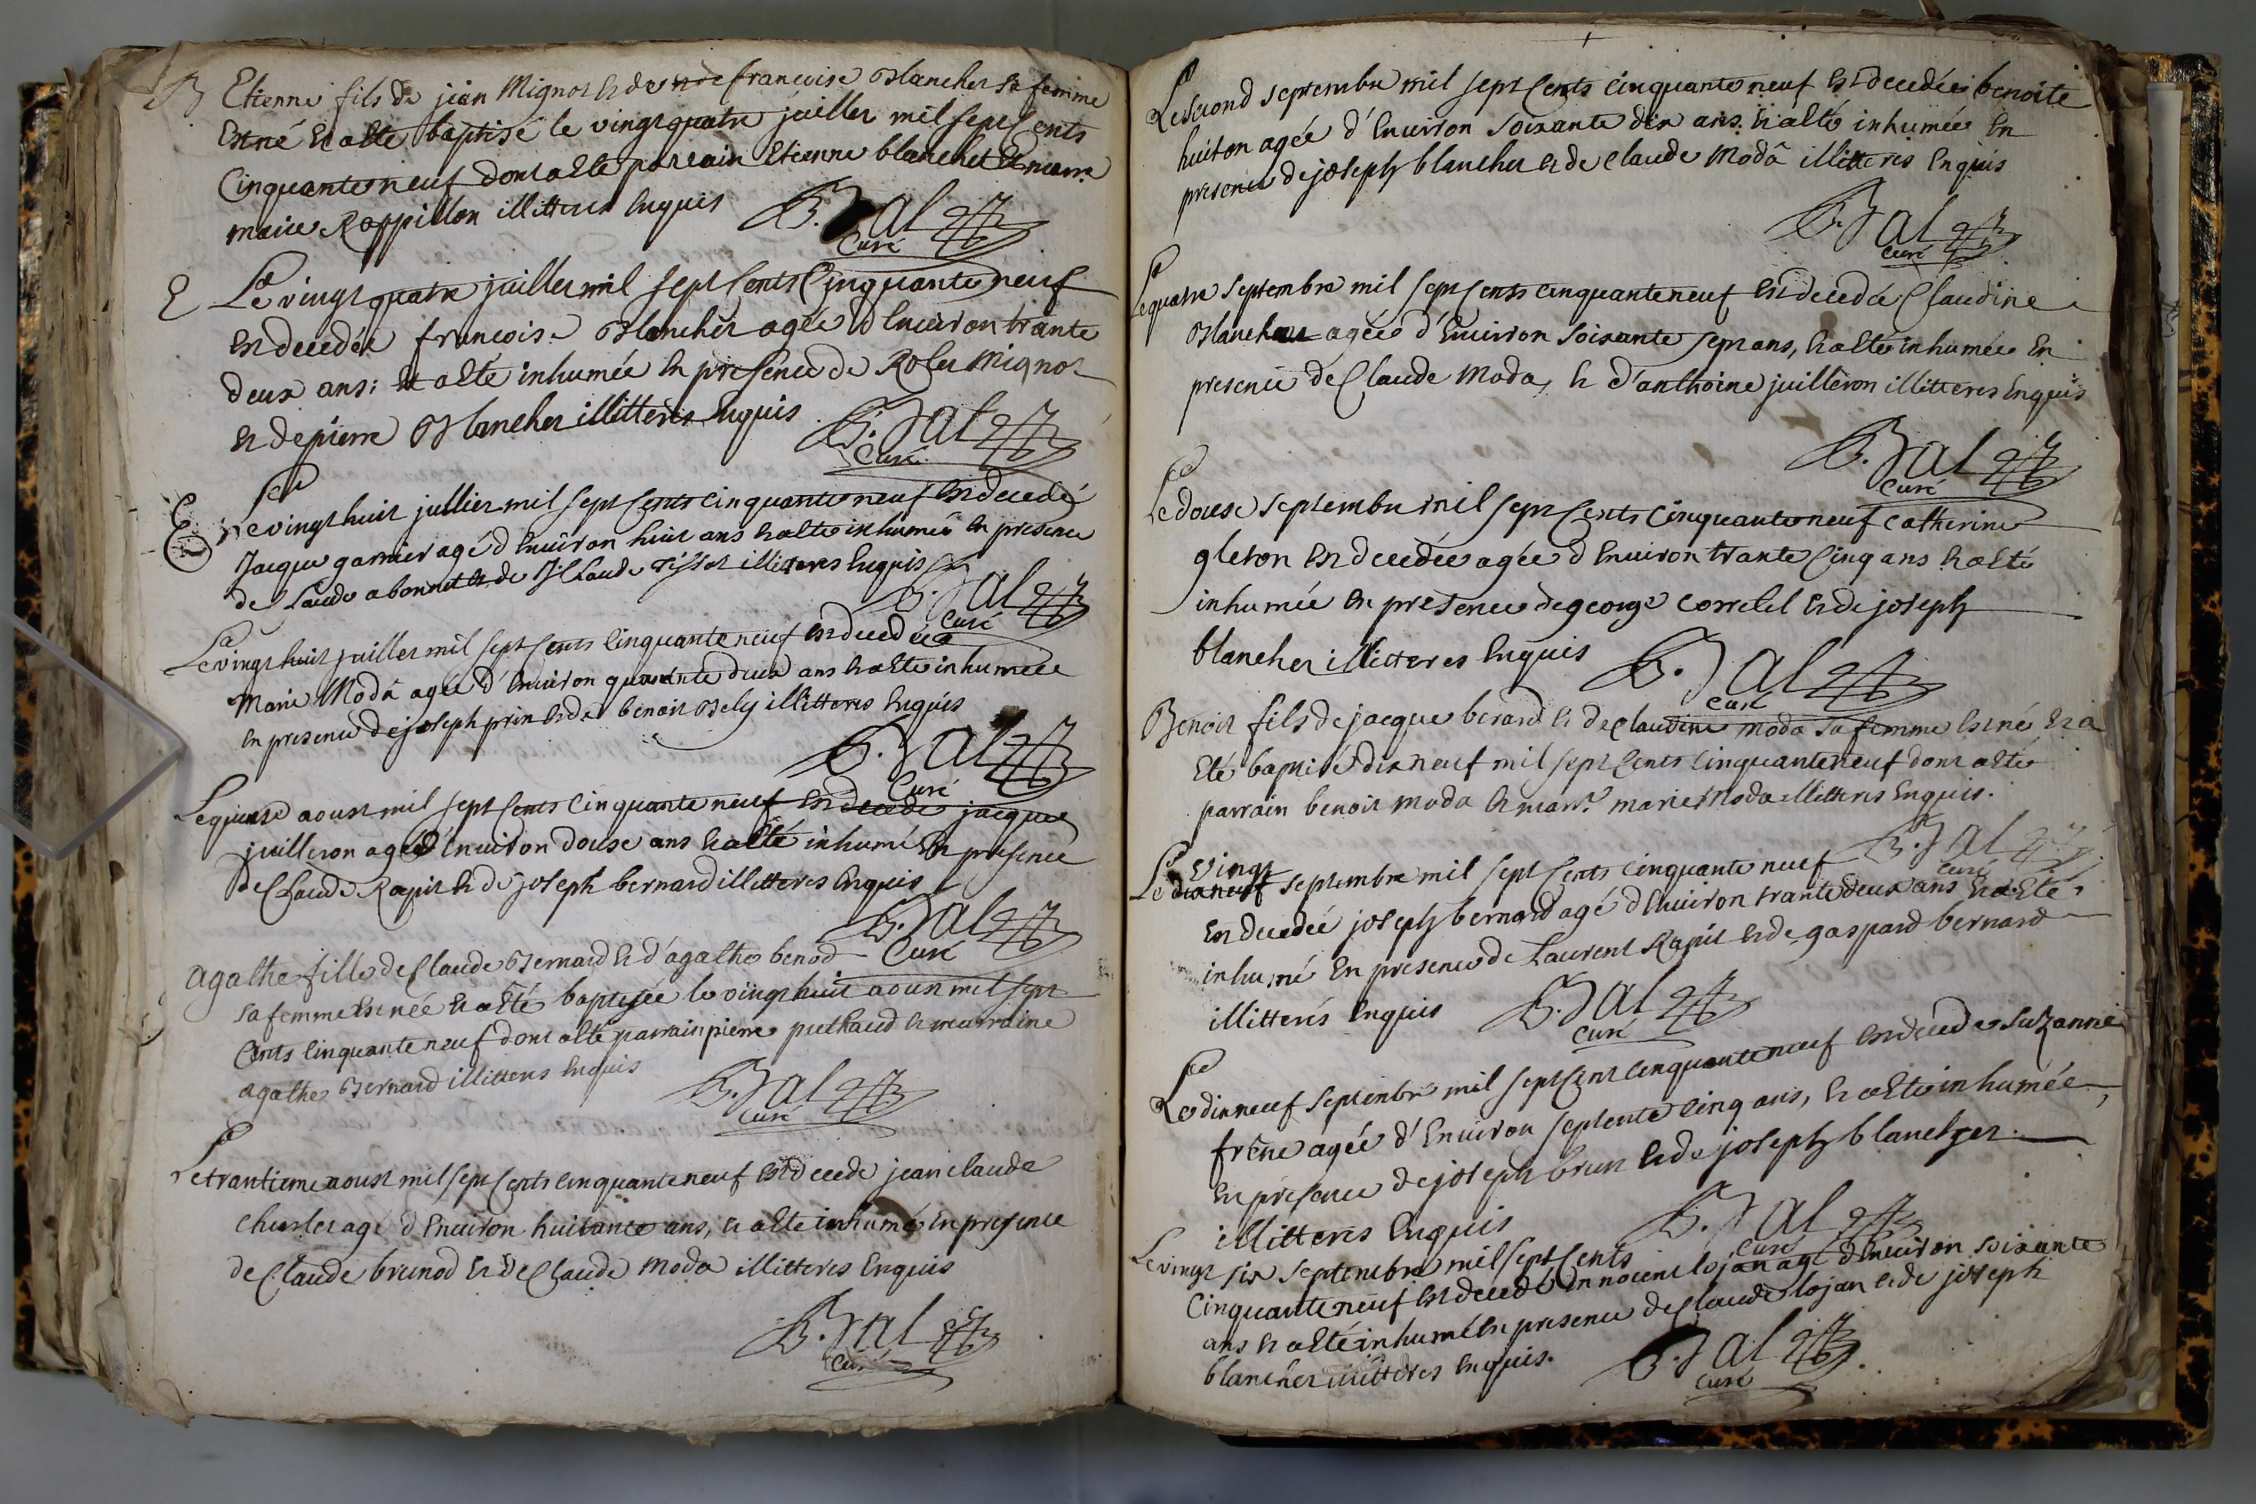 B Etienne fils de jean Mignot et de françoise Blanchet sa femme
est né et a esté baptisé le vingt quatre juillet mil sept Cents
Cinquante neuf dont a esté parrain Etienne blanchet et marr
marie Rappillon illitteres Enquis B. Jal
Curé
Le vingt quatre juillet mil sept Cents Cinquante neuf
est decedée francoise Blanchet agée d'Environ trante
deux ans; et a esté inhumée en presence de Mignot
et de pierre Blanchet illitteres Enquis B. Jal
Curé
Le vingt huit juillet mil sept Cents cinquante neuf est decedé
Jacque garnier agé d'Environ huit ans et a esté inhumé en presence
de Claude abonnet et de Claude Tissot illitteres Enquis B. Jal
Curé
Le vingt huit juillet mil sept Cents Cinquante neuf est decedée
Marie Modâ agée d'Environ quarante deux ans et a esté inhumée
en presence de joseph prin et de benoit Bely illitteres Enquis
B. Jal
Curé
Le quinze aoust mil sept Cents Cinquante neuf est decedé jacque
juilleron agé d'Environ douse ans et a esté inhumé En presence
de Claude Rapit et de joseph bernard illitteres Enquis
B. Jal
Curé
agathe fille de Claude Bernard et d'agathe benod
sa femme est née et a esté baptisée le vingt huit aoust mil sept
Cents Cinquante neuf dont a esté parrain pierre puthaud et marraine
agathe Bernard illitteres Enquis
B. Jal
Curé
Le trantieme aoust mil sept Cents Cinquante neuf est decedé jean claude
charlet agé d'Environ huitante ans, et a esté inhumé En presence
de Claude brunod et de Claude Moda illitteres Enquis
B. Jal
Curé
Le second septembre mil sept Cents Cinquante neuf est decedée benoite
huiton agée d'Environ soixante dix ans et a esté inhumée En
presence de joseph blanchet et de Claude Modâ illitteres Enquis
B. Jal
Curé
Le quatre septembre mil sept Cents Cinquante neuf est decedée Claudine
Blanchet agée d'Environ soixante sept ans, et a esté inhumée En
presence de Claude Moda, et d'anthoine juilleron illitteres Enquis
B. Jal
Curé
Le douse septembre mil sept Cents Cinquante neuf Catherine
gleton est decedée agée d'Environ trante Cinq ans et a esté
inhumée en presence de george corretel et de joseph
blanchet illitteres Enquis B. Jal
Curé
Benoit fils de jacque berard et de Claudine moda sa femme est né et a
Eté baptisé dix neuf mil sept Cents Cinquante neuf dont a esté
parrain benoit moda et marr.e marie Moda illitteres Enquis.
B. Jal
Curé
vingt
Le dix neuf septembre mil sept Cents Cinquante neuf
est decedée joseph bernard agé d'Environ trante deux ans et a Eté
inhumé En presence de Laurent Rapit et de gaspard bernard
illitterés Enquis B. Jal
Curé
Le dix neuf septembre mil sept Cent Cinquante neuf est decedée Suzanne
frêne agée d'Environ septente Cinq ans, et a esté inhumée
En presence de joseph brun et de joseph blanchet
illitterés Enquis B. Jal
Curé
Le vingt six septembre mil sept Cents
Cinquante neuf est decedé Innocent lojan agé d'Environ soixante
ans et a esté inhumé En presence de Claude lojan et de joseph
blanchet illitteres Enquis. B. Jal
Curé